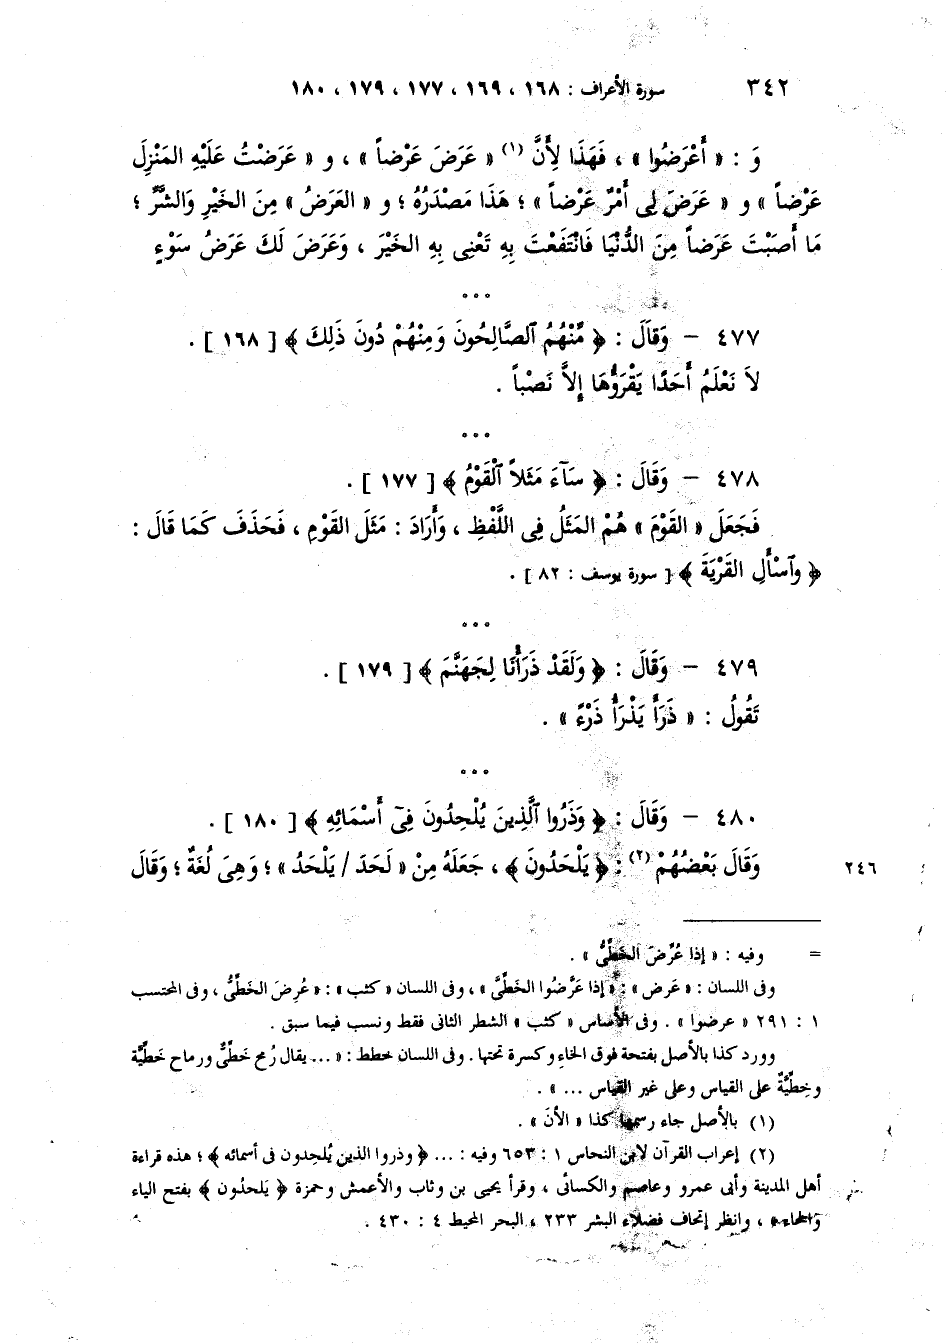 ٣٤٢ سورة الأعراف : ١٦٨ ، ١٦٩ ، ١٧٧ ، ١٧٩ ، ١٨٠
وَ : « أَعْرَضُوا » ، فَهَذَا لِأَنَّ (١) « عَرَضَ عَرْضاً » ، و « عَرَضْتُ عَلَيْهِ المَنْزِلَ
عَرْضاً » و « عَرَضَ لِى أَمْرٌ عَرْضاً » ؛ هَذَا مَصْدَرُهُ ؛ و « العَرَضُ » مِنَ الخَيْرِ وَالشَّرِّ ؛
مَا أَصَبْتَ عَرَضاً مِنَ الدُّنْيَا فَانْتَفَعْتَ بِهِ تَعْنِى بِهِ الخَيْرَ ، وَعَرَضَ لَكَ عَرَضُ سَوْءٍ
٠٠٠
٤٧٧ – وَقَالَ : ﴿ مِّنْهُمُ ٱلصَّالِحُونَ وَمِنْهُمْ دُونَ ذَلِكَ ﴾ [ ١٦٨ ] .
لاَ نَعْلَمُ أَحَدًا يَقْرَؤُهَا إِلاَّ نَصْباً .
٠٠٠
٤٧٨ – وَقَالَ : ﴿ سَآءَ مَثَلاً ٱلْقَوْمُ ﴾ [ ١٧٧ ] .
فَجَعَلَ « القَوْمَ » هُمْ المَثَلُ فِى اللَّفْظِ ، وَأَرَادَ : مَثَلَ القَوْمِ ، فَحَذَفَ كَمَا قَالَ :
﴿ وٱسْأَلِ القَرْيَةَ ﴾ [ سورة يوسف : ٨٢ ] .
٠٠٠
٤٧٩ – وَقَالَ : ﴿ وَلَقَدْ ذَرَأْنَا لِجَهَنَّمَ ﴾ [ ١٧٩ ] .
تَقُولُ : « ذَرَأَ يَذْرَأُ ذَرْءً » .
٠٠٠
٤٨٠ – وَقَالَ : ﴿ وَذَرُوا ٱلَّذِينَ يُلْحِدُونَ فِىٓ أَسْمَائِهِ ﴾ [ ١٨٠ ] .
وَقَالَ بَعْضُهُمْ (٢) : ﴿ يَلْحَدُونَ ﴾ ، جَعَلَهُ مِنْ « لَحَدَ / يَلْحَدُ » ؛ وَهِىَ لُغَةٌ ؛ وَقَالَ ٢٤٦
= وفيه : « إذا عُرِّضَ الخَطِّىُّ » .
وفى اللسان : « عَرض » : « إذا عَرَّضُوا الخَطِّىَّ » ، وفى اللسان « كثب » : « عُرِضَ الخَطِّىُّ ، وفى المحتسب
١ : ٢٩١ « عرضوا » . وفى الأساس « كثب » الشطر الثانى فقط ونسب فيما سبق .
وورد كذا بالأصل بفتحة فوق الخاءِ وكسرة تحتها . وفى اللسان خطط : « ... يقال رُمح خَطِّىٌّ ورماح خَطِّيَّة
وخِطِّيَّةٌ على القياس وعلى غير القياس ... » .
(١) بالأصل جاء رسمها كذا « الأنَ » .
(٢) إعراب القرآن لابن النحاس ١ : ٦٥٣ وفيه : ... ﴿ وذروا الذين يُلحِدون فى أسمائه ﴾ ؛ هذه قراءة
أهل المدينة وأبى عمرو وعاصم والكسائى ، وقرأ يحيى بن وثاب والأعمش وحمزة ﴿ يَلحَدُون ﴾ بفتح الياء
والحاء » ، وانظر إتحاف فضلاء البشر ٢٣٣ ، البحر المحيط ٤ : ٤٣٠ .